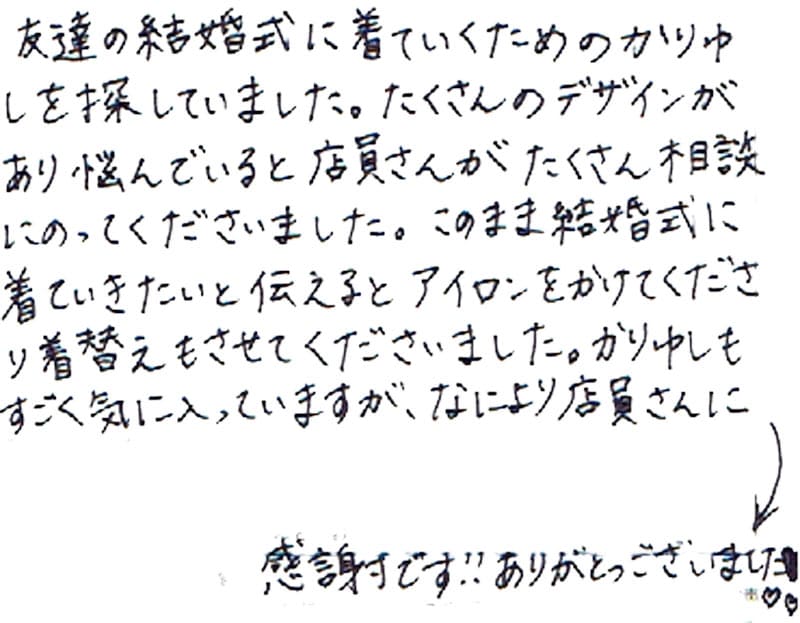 友達の結婚式に着ていくためのかりゆ
しを探していました。たくさんのデザインが
あり悩んでいると店員さんがたくさん相談
にのってくださいました。このまま結婚式に
着ていきたいと伝えるとアイロンをかけてくださ
り着替えもさせてくださいました。かりゆしも
すごく気に入っていますが、なにより店員さんに
感謝です!!ありがとうございました!